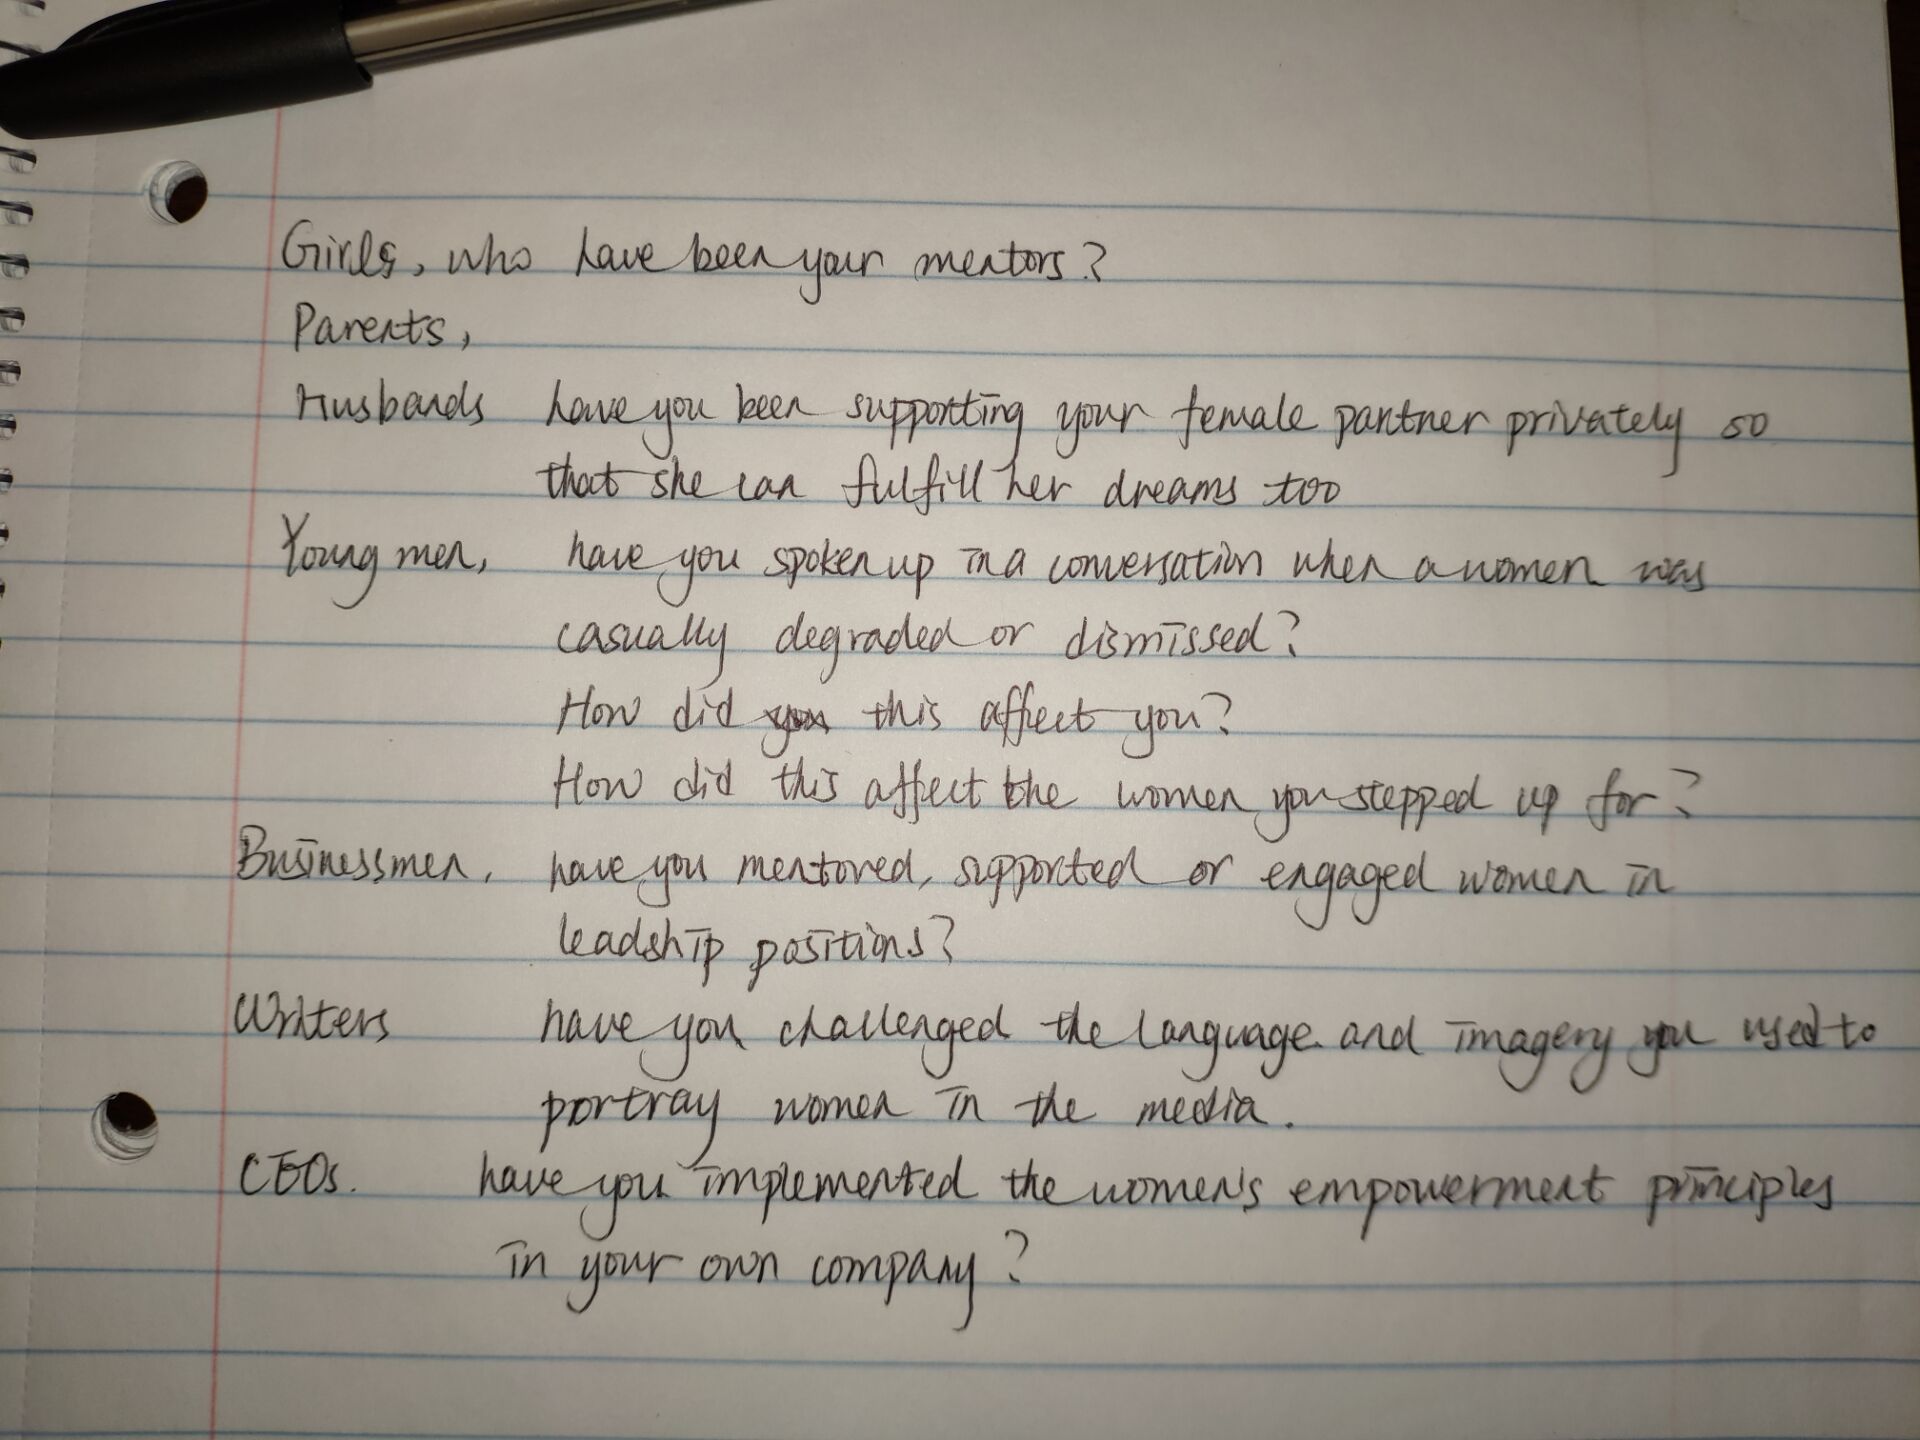 Girls, who have been your mentors?
Parents,
Husbands have you been supporting your female partner privately so
that she can fulfill her dreams too
Young men, have you spoken up in a conversation when a women was
casually degraded or dismissed?
How did this affect you?
How did this affect the women you stepped up for?
Businessmen, have you mentored, supported or engaged women in
leadship positions?
Writers have you challenged the language and imagery you used to
portray women in the media.
CEOs. have you implemented the women's empowerment principles
in your own company?